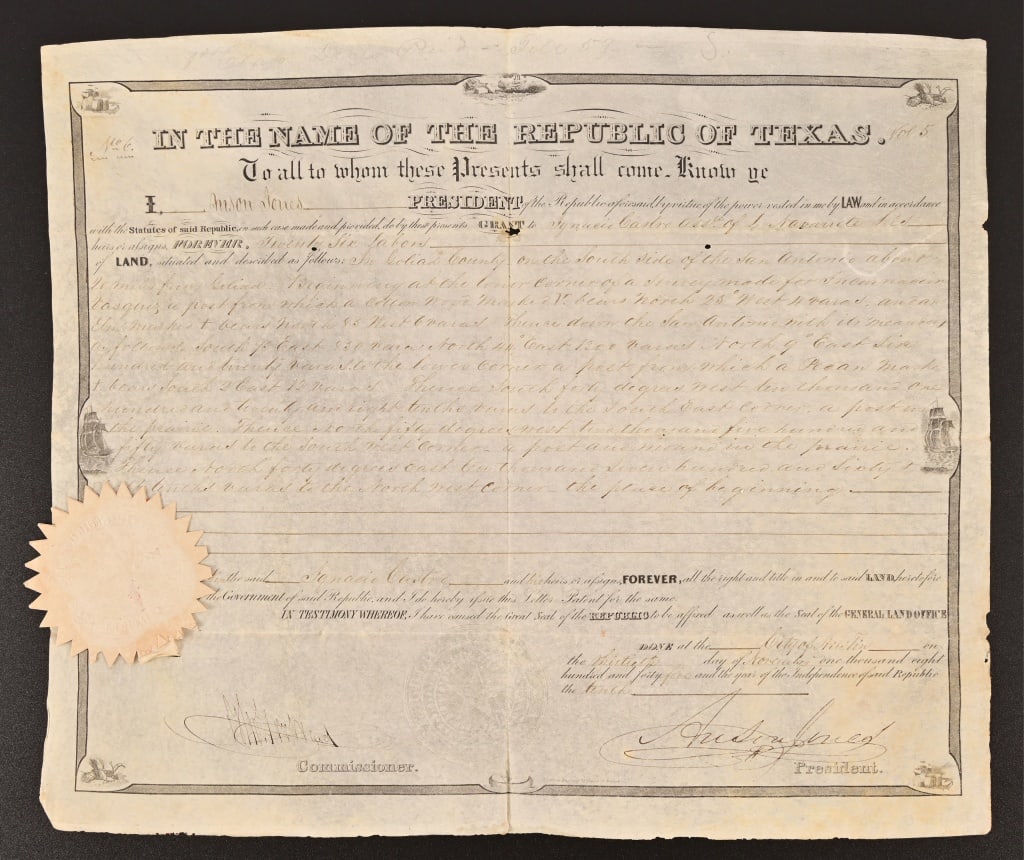 No 6. IN THE NAME OF THE REPUBLIC OF TEXAS. Vol 5
To all to whom these Presents shall come. Know ye
I, Anson Jones PRESIDENT of the Republic aforesaid, by virtue of the power vested in me by LAW and in accordance
with the Statutes of said Republic, in such case made and provided, do by these presents GRANT to Ignacio Castro of
heirs or assigns, FOREVER, Twenty Six Labors
of LAND, situated and described as follows: In Goliad County on the South Side of the San Antonio about
Beginning at the lower Corner of a survey made for
a post from which a bears North 25° West 4 varas, and an
bears North West 6 varas Thence down the San Antonio with its meanders
as follows South East 330 varas North 44° East 1200 varas North 9° East Six
hundred and twenty varas to the lower Corner a post from which a
bears South 2 East varas Thence South forty degrees West two thousand one
hundred and twenty and eight tenths varas to the South East Corner, a post in
the prairie. Thence North fifty degrees West thousand five hundred and
fifty varas to the South West Corner a post and mound in the prairie.
Thence North forty degrees East thousand hundred and sixty
tenths varas to the North West Corner the place of beginning
the said Ignacio Castro and his heirs or assigns, FOREVER, all the right and title in and to said LAND, heretofore
the Government of said Republic, and I do hereby issue this Letter Patent for the same.
IN TESTIMONY WHEREOF, I have caused the Great Seal of the REPUBLIC to be affixed as well as the Seal of the GENERAL LAND OFFICE
DONE at the City of Austin on
the thirtieth day of November one thousand eight
hundred and forty five and the year of the Independence of said Republic
the tenth
Anson Jones
Commissioner. President.